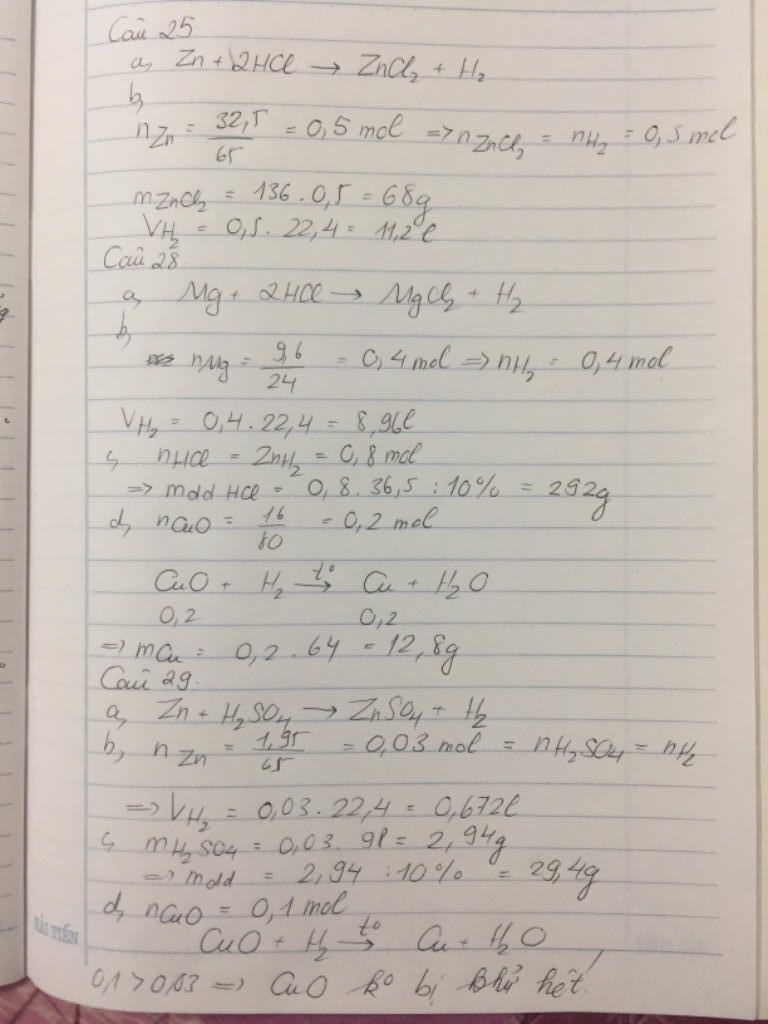 Câu 25
a, Zn + 2HCl → ZnCl₂ + H₂
b,
nZn = 32,5/65 = 0,5 mol => nZnCl₂ = nH₂ = 0,5 mol
mZnCl₂ = 136 . 0,5 = 68g
VH₂ = 0,5 . 22,4 = 11,2l
Câu 28
a, Mg + 2HCl → MgCl₂ + H₂
b,
nMg = 9,6/24 = 0,4 mol => nH₂ = 0,4 mol
VH₂ = 0,4 . 22,4 = 8,96l
c, nHCl = 2nH₂ = 0,8 mol
=> mdd HCl = 0,8 . 36,5 : 10% = 292g
d, nCuO = 16/80 = 0,2 mol
CuO + H₂ →(t°) Cu + H₂O
0,2 0,2
=> mCu = 0,2 . 64 = 12,8g
Câu 29
a, Zn + H₂SO₄ → ZnSO₄ + H₂
b, nZn = 1,95/65 = 0,03 mol = nH₂SO₄ = nH₂
=> VH₂ = 0,03 . 22,4 = 0,672l
c, mH₂SO₄ = 0,03 . 98 = 2,94g
=> mdd = 2,94 : 10% = 29,4g
d, nCuO = 0,1 mol
CuO + H₂ →(t°) Cu + H₂O
0,1 > 0,03 => CuO ko bị khử hết.
HẢI TIẾN